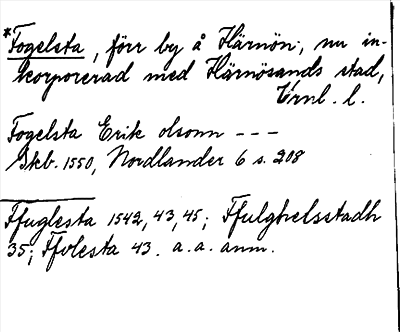 *Fogelsta, förr by å Härnön, nu in-
korporerad med Härnösands stad,
Vrnl. l.
Fogelsta Erik olsonn ---
Skb. 1550, Nordlander 6 s. 208
Ffuglesta 1542, 43, 45; Ffulghelsstadh
35; Ffolesta 43. a. a. anm.